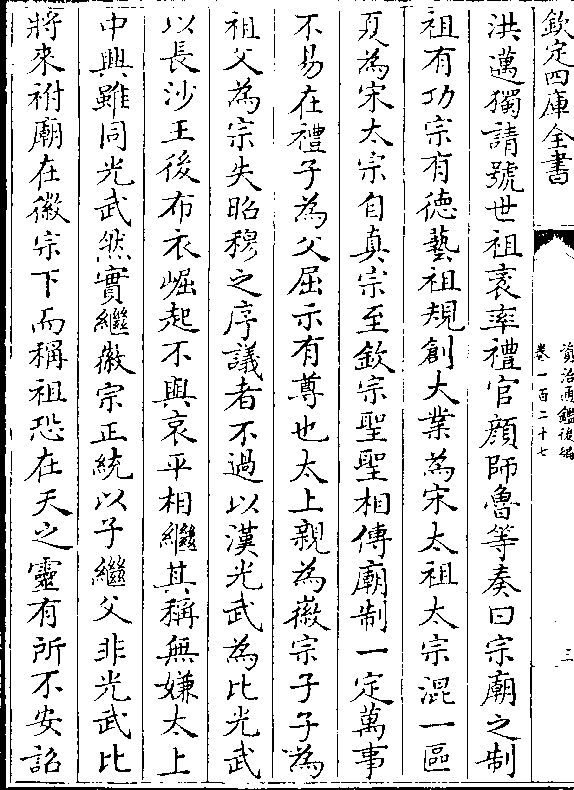 欽定四庫全書
資治通鑑後編
卷一百二十七
三
洪邁獨請號世祖袤率禮官顔師魯等奏曰宗廟之制
祖有功宗有德藝祖規創大業為宋太祖太宗混一區
夏為宋太宗自真宗至欽宗聖聖相傳廟制一定萬事
不易在禮子為父屈示有尊也太上親為徽宗子子為
祖父為宗失昭穆之序議者不過以漢光武為比光武
以長沙王後布衣崛起不與哀平相繼其稱無嫌太上
中興雖同光武然實繼徽宗正統以子繼父非光武比
將來祔廟在徽宗下而稱祖恐在天之靈有所不安詔